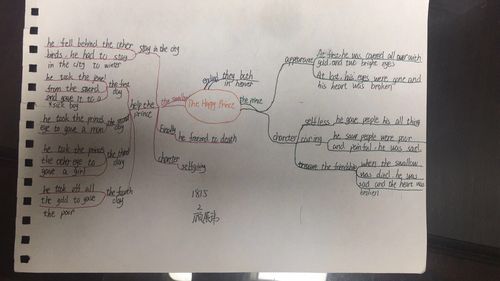 he fell behind the other
birds. he had to stay
in the city to winter
stay in the city
he took the jewel
from the sword
and gave it to a
sick boy
the first
day
he took the prince
eye to gave a man
the second
day
he took the prince
the other eye to
gave a girl
the third
day
he took off all
the gold to gave
the poor
the fourth
day
help the
prince
the swallow
finally
he farzed to death
charcter
selfgiving
The Happy Prince
ending
they both
in heaven
the prince
appearance
At first he was covered all over with
gold and two bright eyes
At last his eyes were gone and
his heart was broken
charcter
selfless
he gave people his all thing
caring
he saw people were poor
and painful he was sad
treasure the friendship
when the swallow
was died he was
sad and the heart was
broken
1815
2